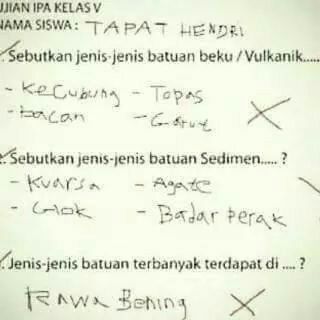 UJIAN IPA KELAS V
NAMA SISWA : TAPAT HENDRI
. Sebutkan jenis-jenis batuan beku / Vulkanik.....
- Kecubung - Topas
- bacan - Garut
. Sebutkan jenis-jenis batuan Sedimen..... ?
- Kuarsa - Agate
- Giok - Badar perak
. Jenis-jenis batuan terbanyak terdapat di .... ?
RAWA Bening